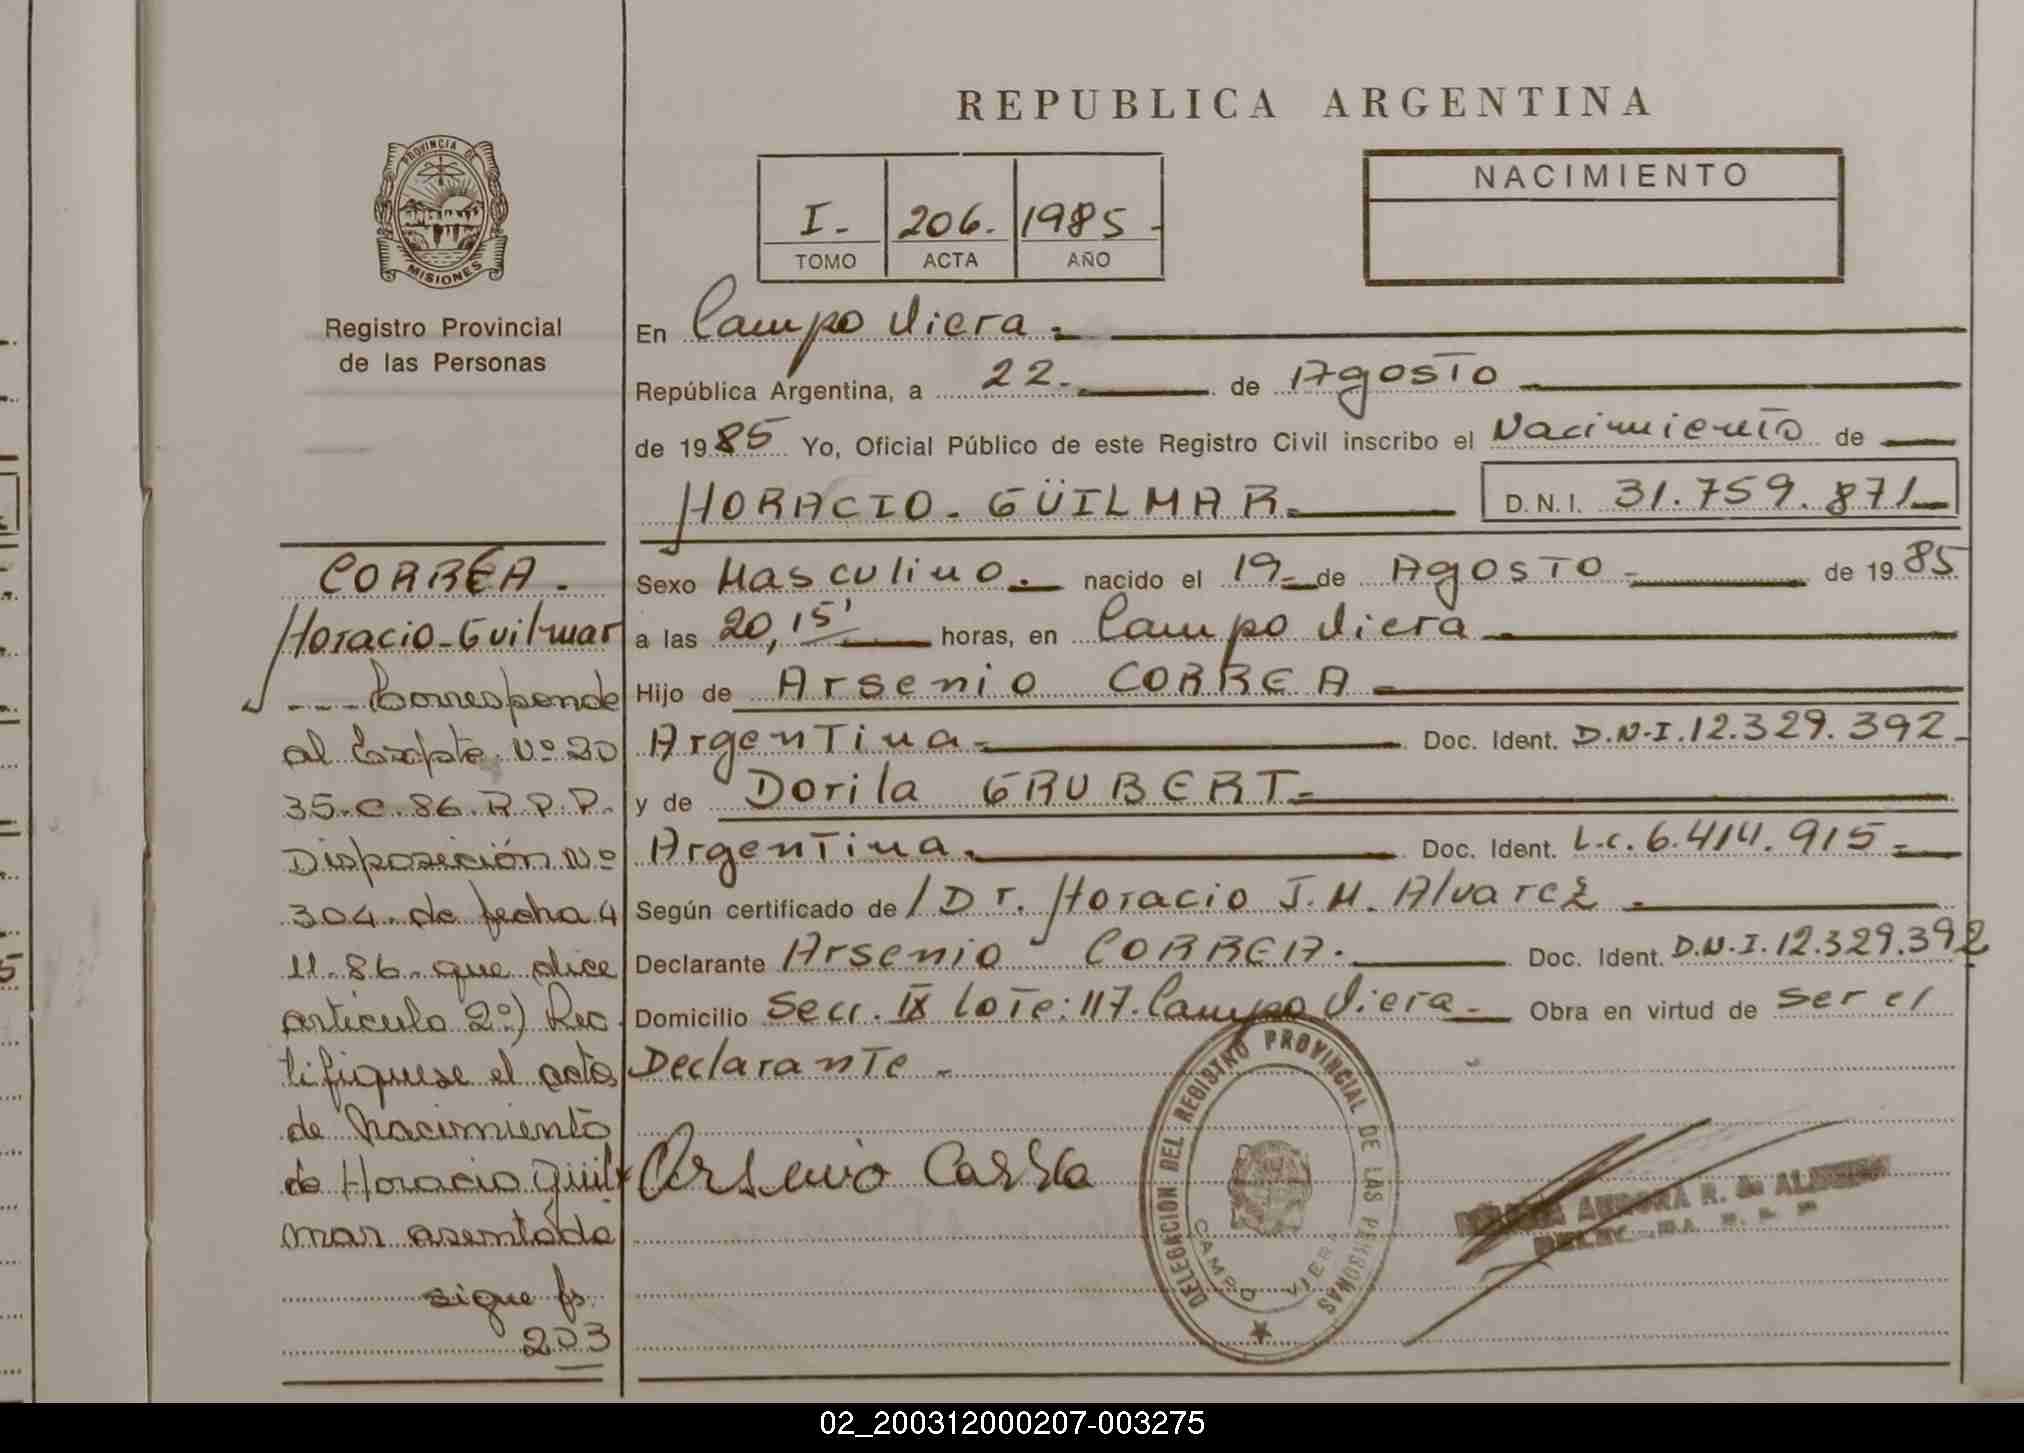 REPUBLICA ARGENTINA
PROVINCIA DE
MISIONES
Registro Provincial
de las Personas
I.- 206.- 1985.-
TOMO ACTA AÑO
NACIMIENTO
En Campo Viera.-
República Argentina, a 22.- de Agosto
de 1985 Yo, Oficial Público de este Registro Civil inscribo el Nacimiento de
HORACIO-GÜILMAR.- D.N.I. 31.759.871.-
Sexo Masculino.- nacido el 19- de Agosto- de 1985
a las 20,15' horas, en Campo Viera.-
Hijo de Arsenio CORREA-
Argentina- Doc. Ident. D.N.I.12.329.392-
y de Dorila GRUBERT-
Argentina.- Doc. Ident. L.C.6.414.915-
Según certificado de / Dr. Horacio J.M. Alvarez.-
Declarante Arsenio CORREA.- Doc. Ident. D.N.I.12.329.392
Domicilio Secc. IX Lote: 117. Campo Viera.- Obra en virtud de ser el
Declarante-
Arsenio Correa
CORREA.
Horacio-Guilmar
---Corresponde
al Expte. Nº 20
35-C-86 R.P.P.
Disposición Nº
304 de fecha 4
11-86 que dice
artículo 2º) Rec
tifíquese el acta
de Nacimiento
de Horacio Güil
mar asentada
sigue fs.
203
DELEGACION DEL REGISTRO PROVINCIAL DE LAS PERSONAS
CAMPO VIERA
AURORA R. de
02_200312000207-003275